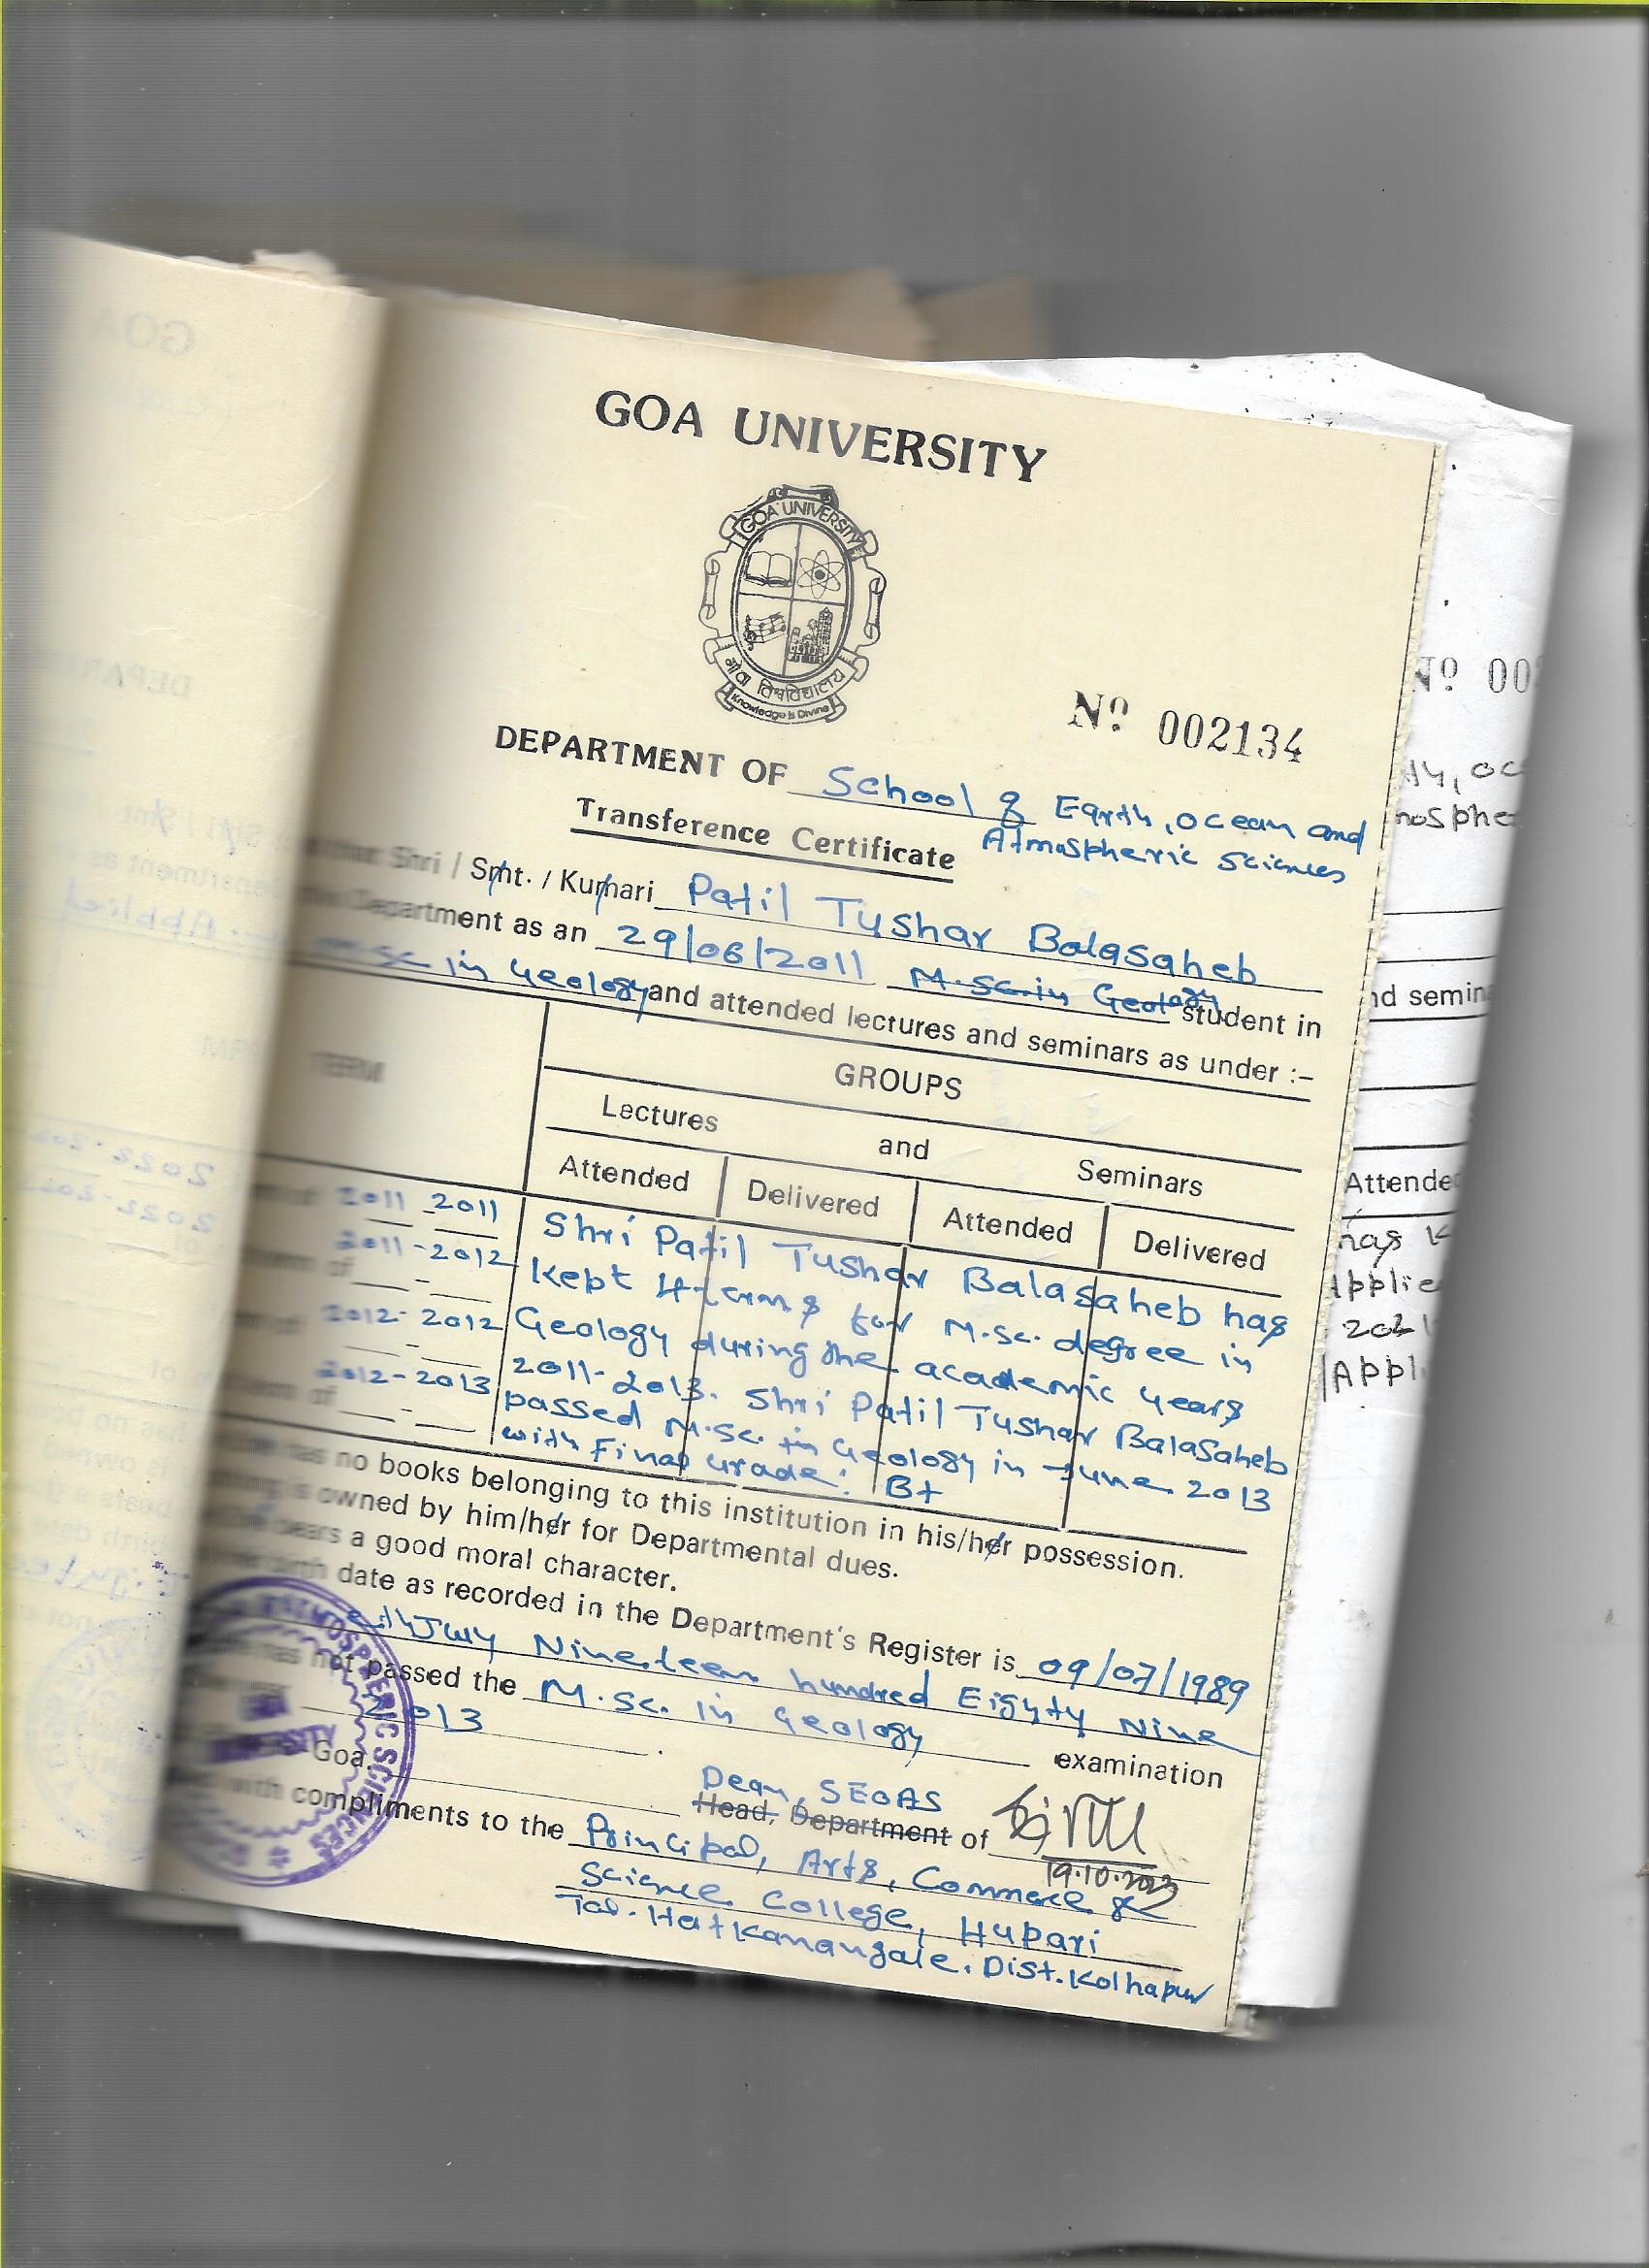 GOA UNIVERSITY
GOA UNIVERSITY
गोवा विश्वविद्यालय
Knowledge is Divine
Nº 002134
DEPARTMENT OF School of Earth, Ocean and
Atmospheric Sciences
Transference Certificate
Shri / Smt. / Kumari Patil Tushar Balasaheb
Department as an 29/06/2011 M.Sc. in Geology student in
M.Sc in Geology and attended lectures and seminars as under :–
TERM
GROUPS
Lectures and Seminars
Attended Delivered Attended Delivered
2011 2011
2011-2012
of
2012-2012
2012-2013
of
Shri Patil Tushar Balasaheb has
Kept 4 terms for M.Sc. degree in
Geology during the academic years
2011-2013. Shri Patil Tushar BalaSaheb
passed M.Sc. in Geology in June 2013
with Final Grade: B+
has no books belonging to this institution in his/her possession.
is owned by him/her for Departmental dues.
bears a good moral character.
birth date as recorded in the Department's Register is 09/07/1989
July Nineteen hundred Eighty Nine
has not passed the M.Sc. in Geology examination
2013
Goa.
Dean, SEOAS
Head, Department of
19.10.2023
with compliments to the Principal, Arts, Commerce &
Science College, Hupari
Tal. Hatkanangale. Dist. Kolhapur
ATMOSPHERIC SCIENCES
GOA
UNIVERSITY
Nº 00
nd semin
Attende
has K
Applie
202
Appli
GOA